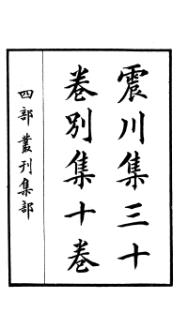 震川集三十
卷别集十卷
四部叢刊集部